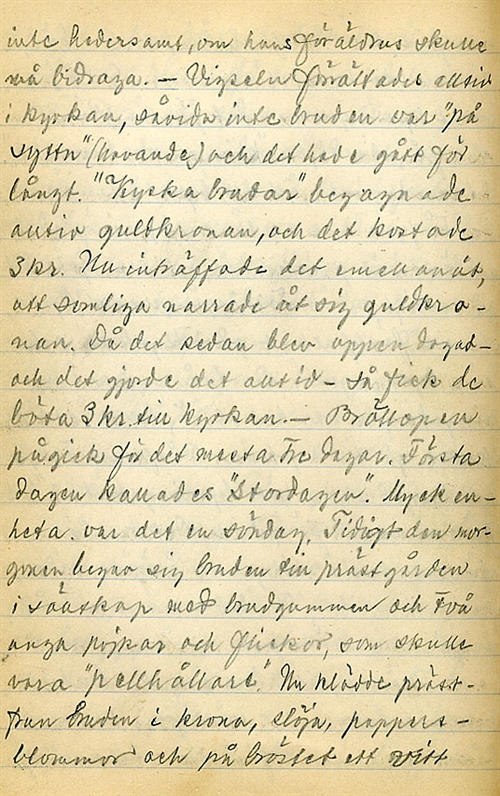 inte hedersamt, om hans föräldrar skulle
må bidraga. — Vigseln förättades alltid
i kyrkan, såvida inte bruden var "på
syttn" (havande) och det hade gått för
långt. "Kyska brudar" begagnade
alltid guldkronan, och det kostade
3 kr. Nu inträffade det emellanåt,
att somliga narrade åt sig guldkro-
nan. Då det sedan blev uppen dagad —
och det gjorde det alltid — så fick de
böta 3 kr. till kyrkan. — Bröllopen
pågick för det mesta tre dagar. Första
dagen kallades "Stordagen". Mycken-
heta. var det en söndag. Tidigt den mor-
gonen begav sig bruden till prästgården
i sällskap med brudgummen och två
unga pojkar och flickor, som skulle
vara "pellhållare". Nu klädde präst-
frun bruden i krona, slöja, pappers-
blommor och på bröstet ett vitt